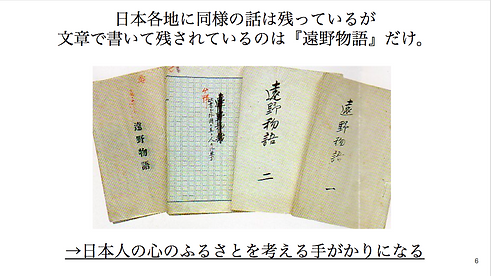 日本各地に同様の話は残っているが
文章で書いて残されているのは『遠野物語』だけ。
遠野物語
遠野物語
二
遠野物語
一
→日本人の心のふるさとを考える手がかりになる
6